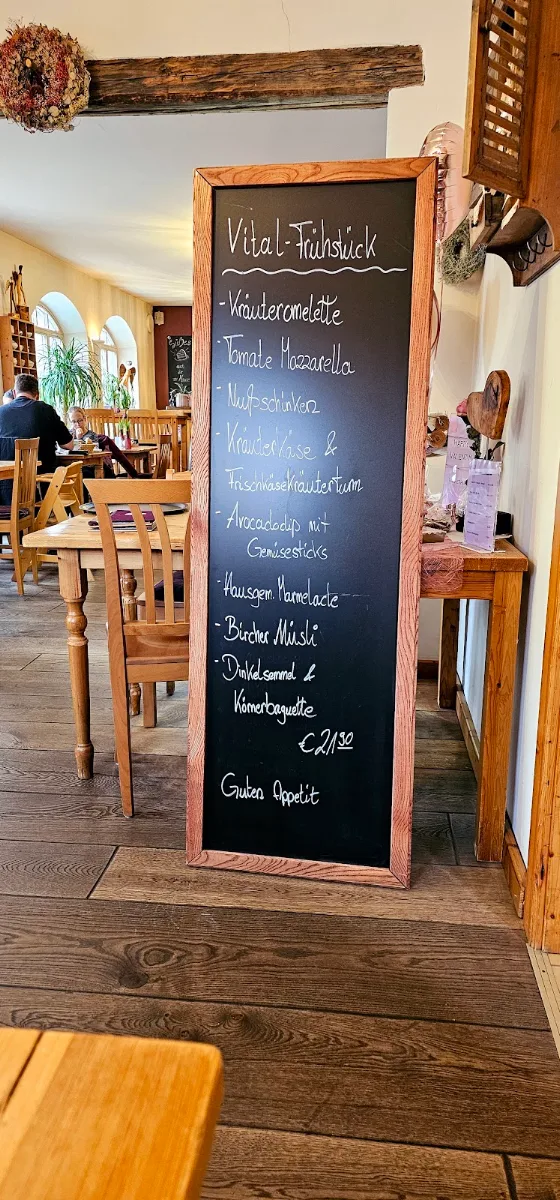 Vital-Frühstück
- Kräuteromelette
- Tomate Mozzarella
- Nußschinken
- Kräuterkäse &
Frischkäsekräuterturm
- Avocadodip mit
Gemüsesticks
- Hausgem. Marmelade
- Bircher Müsli
- Dinkelsemmel &
Körnerbaguette
€ 21,90
Guten Appetit